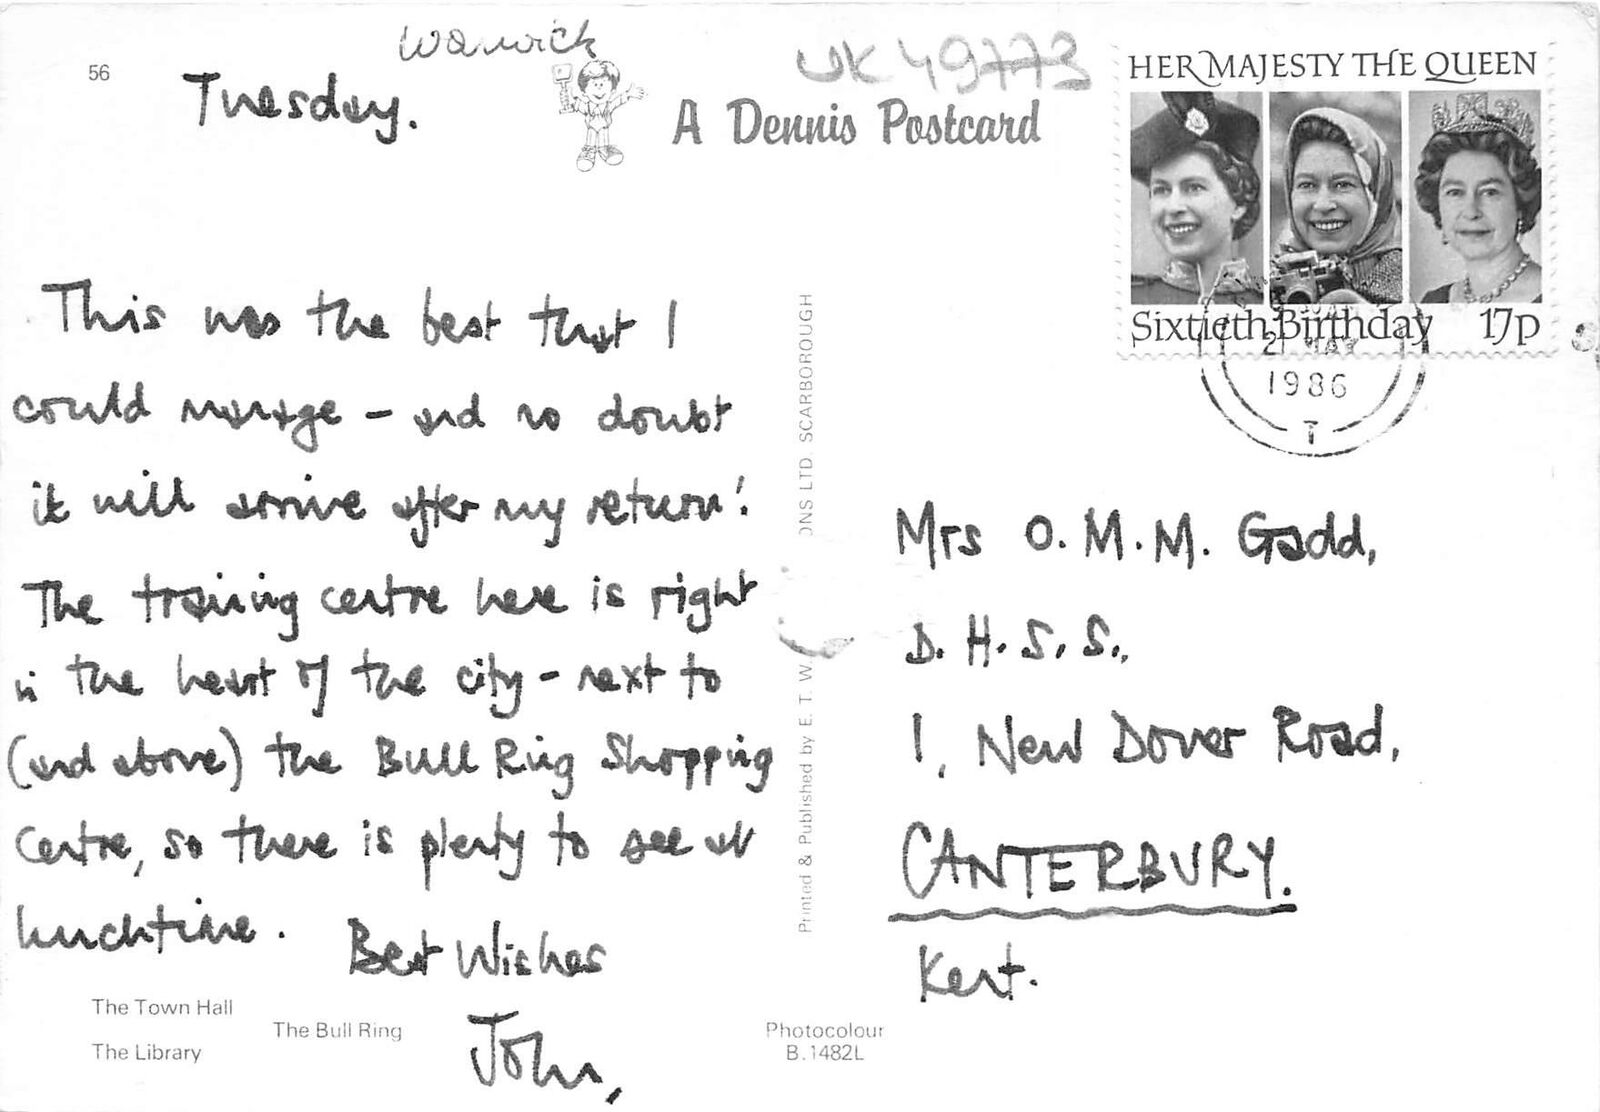 56
Warwick
UK 49773
Tuesday.
A Dennis Postcard
HER MAJESTY THE QUEEN
Sixtieth Birthday 17p
2 MAY
1986
T
This was the best that I
could manage - and no doubt
it will arrive after my return!
The training centre here is right
in the heart of the city - next to
(and above) the Bull Ring Shopping
Centre, so there is plenty to see at
lunchtime.
Best Wishes
John,
The Town Hall
The Bull Ring
The Library
Photocolour
B.1482L
Printed & Published by E. T. W. ONS LTD. SCARBOROUGH
Mrs O. M. M. Gadd,
D. H. S. S.,
1, New Dover Road,
CANTERBURY.
Kent.